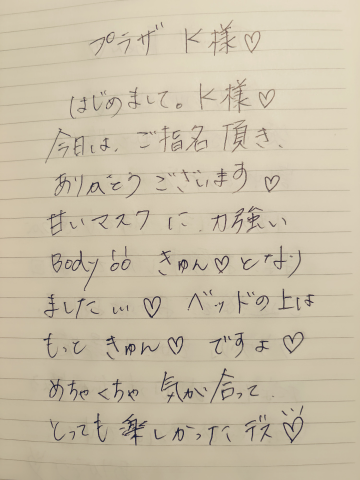 プラザ K様♡
はじめまして。K様♡
今日は、ご指名 頂き、
ありがとう ございます ♡
甘いマスク に 力強い
Body きゅん♡ となり
ました ♡ ベッドの上は
もっと きゅん♡ ですょ♡
めちゃくちゃ 気が合って
とっても 楽しかったデス♡